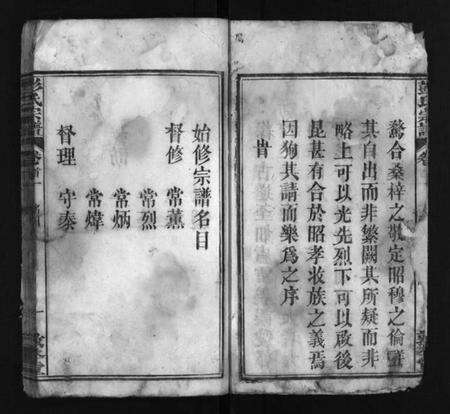 彭氏宗譜
卷首
鶩合桑梓之敬定昭穆之倫譜
其自出而非繁闕其所疑而非
略上可以光先烈下可以啟後
昆甚有合於昭孝收族之義焉
因狥其請而樂為之序
旹
始修宗譜名目
督修 常薰
常烈
常炳
常煒
督理 守泰
彭氏宗譜
卷首
一